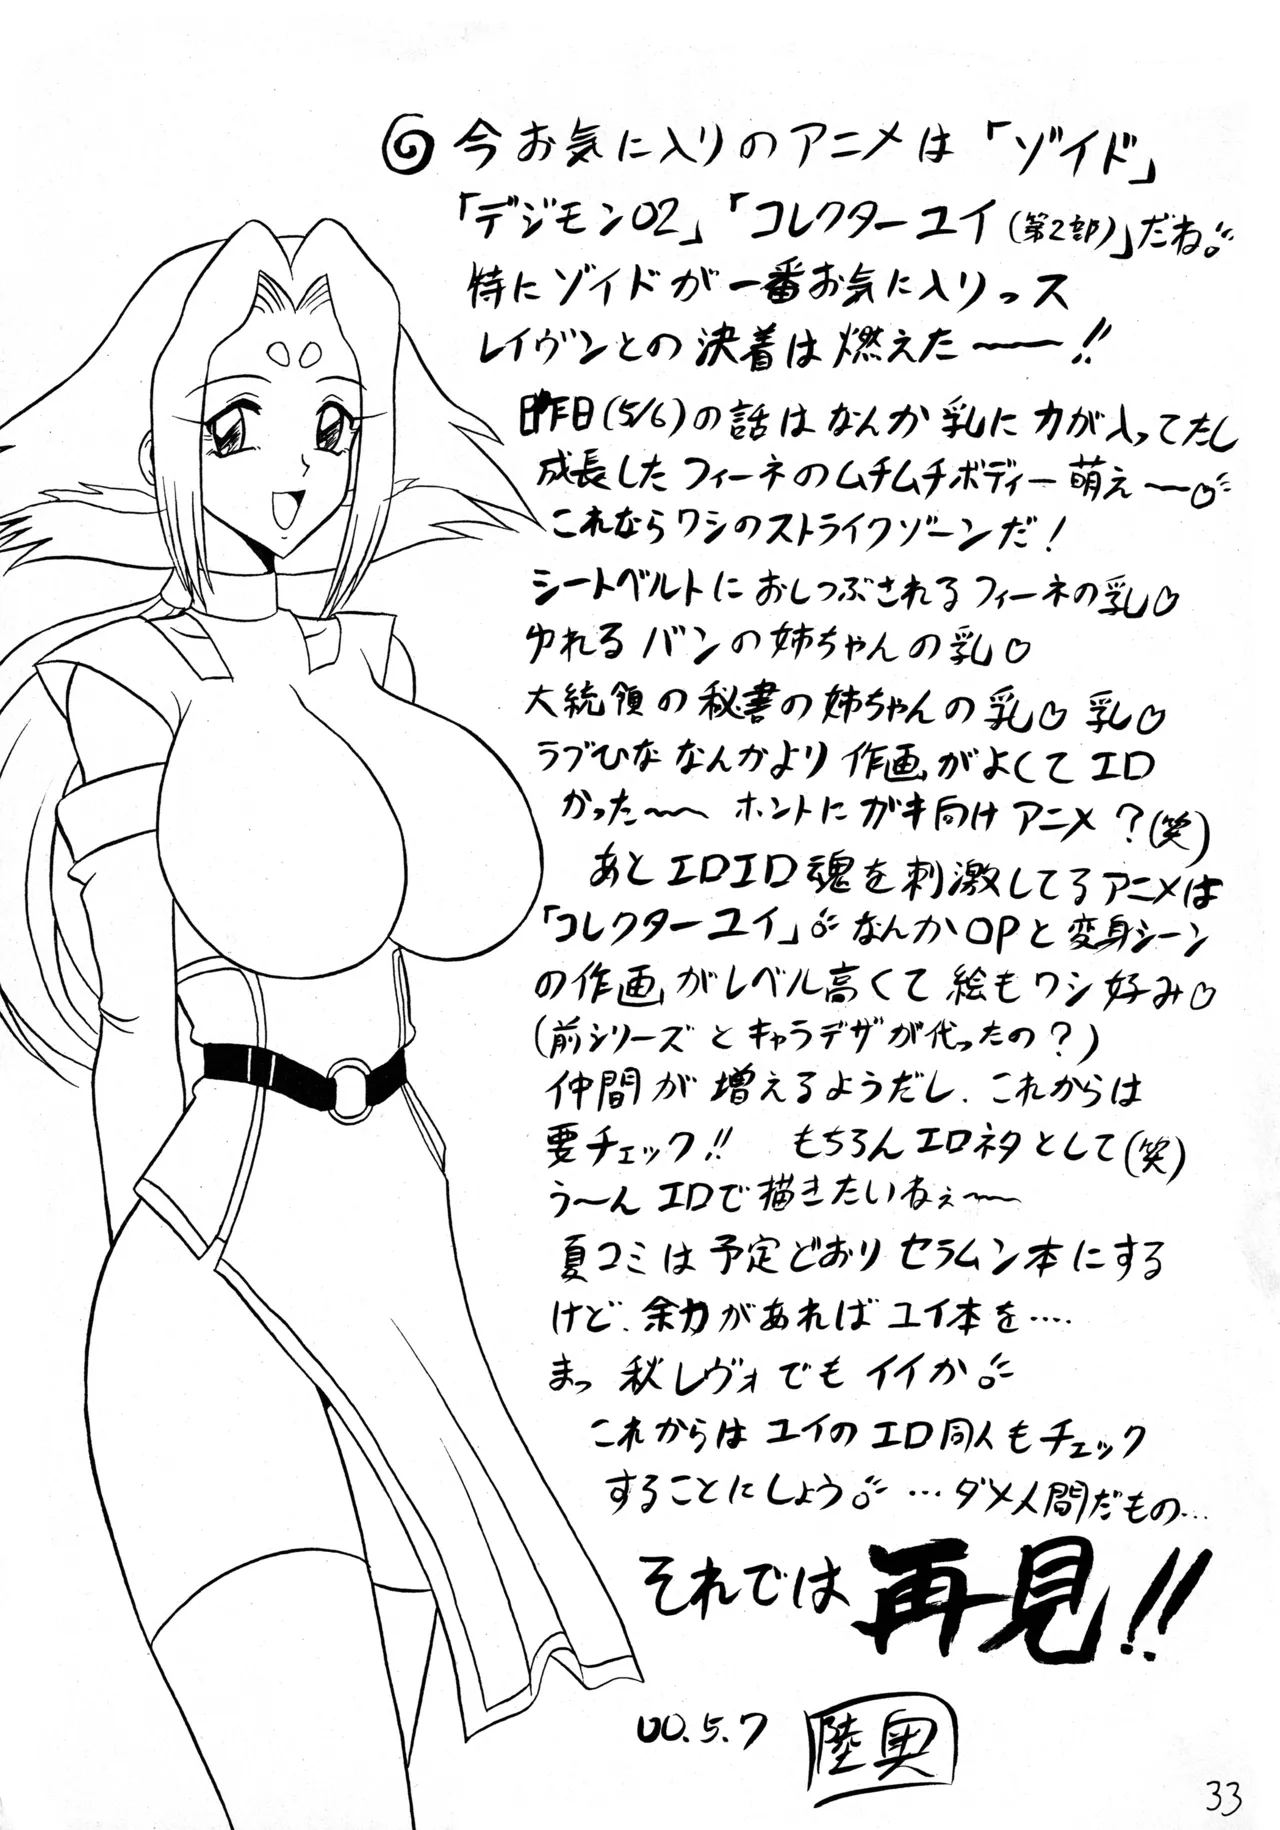 今お気に入りのアニメは「ゾイド」
「デジモン02」「コレクターユイ(第2部)」だね♪
特にゾイドが一番お気に入りっス
レイヴンとの決着は燃えた〜〜!!
昨日(5/6)の話はなんか乳に力が入ってたし
成長したフィーネのムチムチボディー萌え〜♡
これならワシのストライクゾーンだ!
シートベルトにおしつぶされるフィーネの乳♡
ゆれるバンの姉ちゃんの乳♡
大統領の秘書の姉ちゃんの乳♡乳♡
ラブひななんかより作画がよくてエロ
かった〜〜 ホントにガキ向けアニメ?(笑)
あとエロエロ魂を刺激してるアニメは
「コレクターユイ」♪なんかOPと変身シーン
の作画がレベル高くて絵もワシ好み♡
(前シリーズとキャラデザが代ったの?)
仲間が増えるようだし、これからは
要チェック!! もちろんエロネタとして(笑)
う〜んエロで描きたいねぇ〜〜
夏コミは予定どおりセラムン本にする
けど、余力があればユイ本を….
まっ秋レヴォでもイイか♪
これからはユイのエロ同人もチェック
することにしよう♪…ダメ人間だもの…
それでは再見!!
00.5.7 陸奥
33